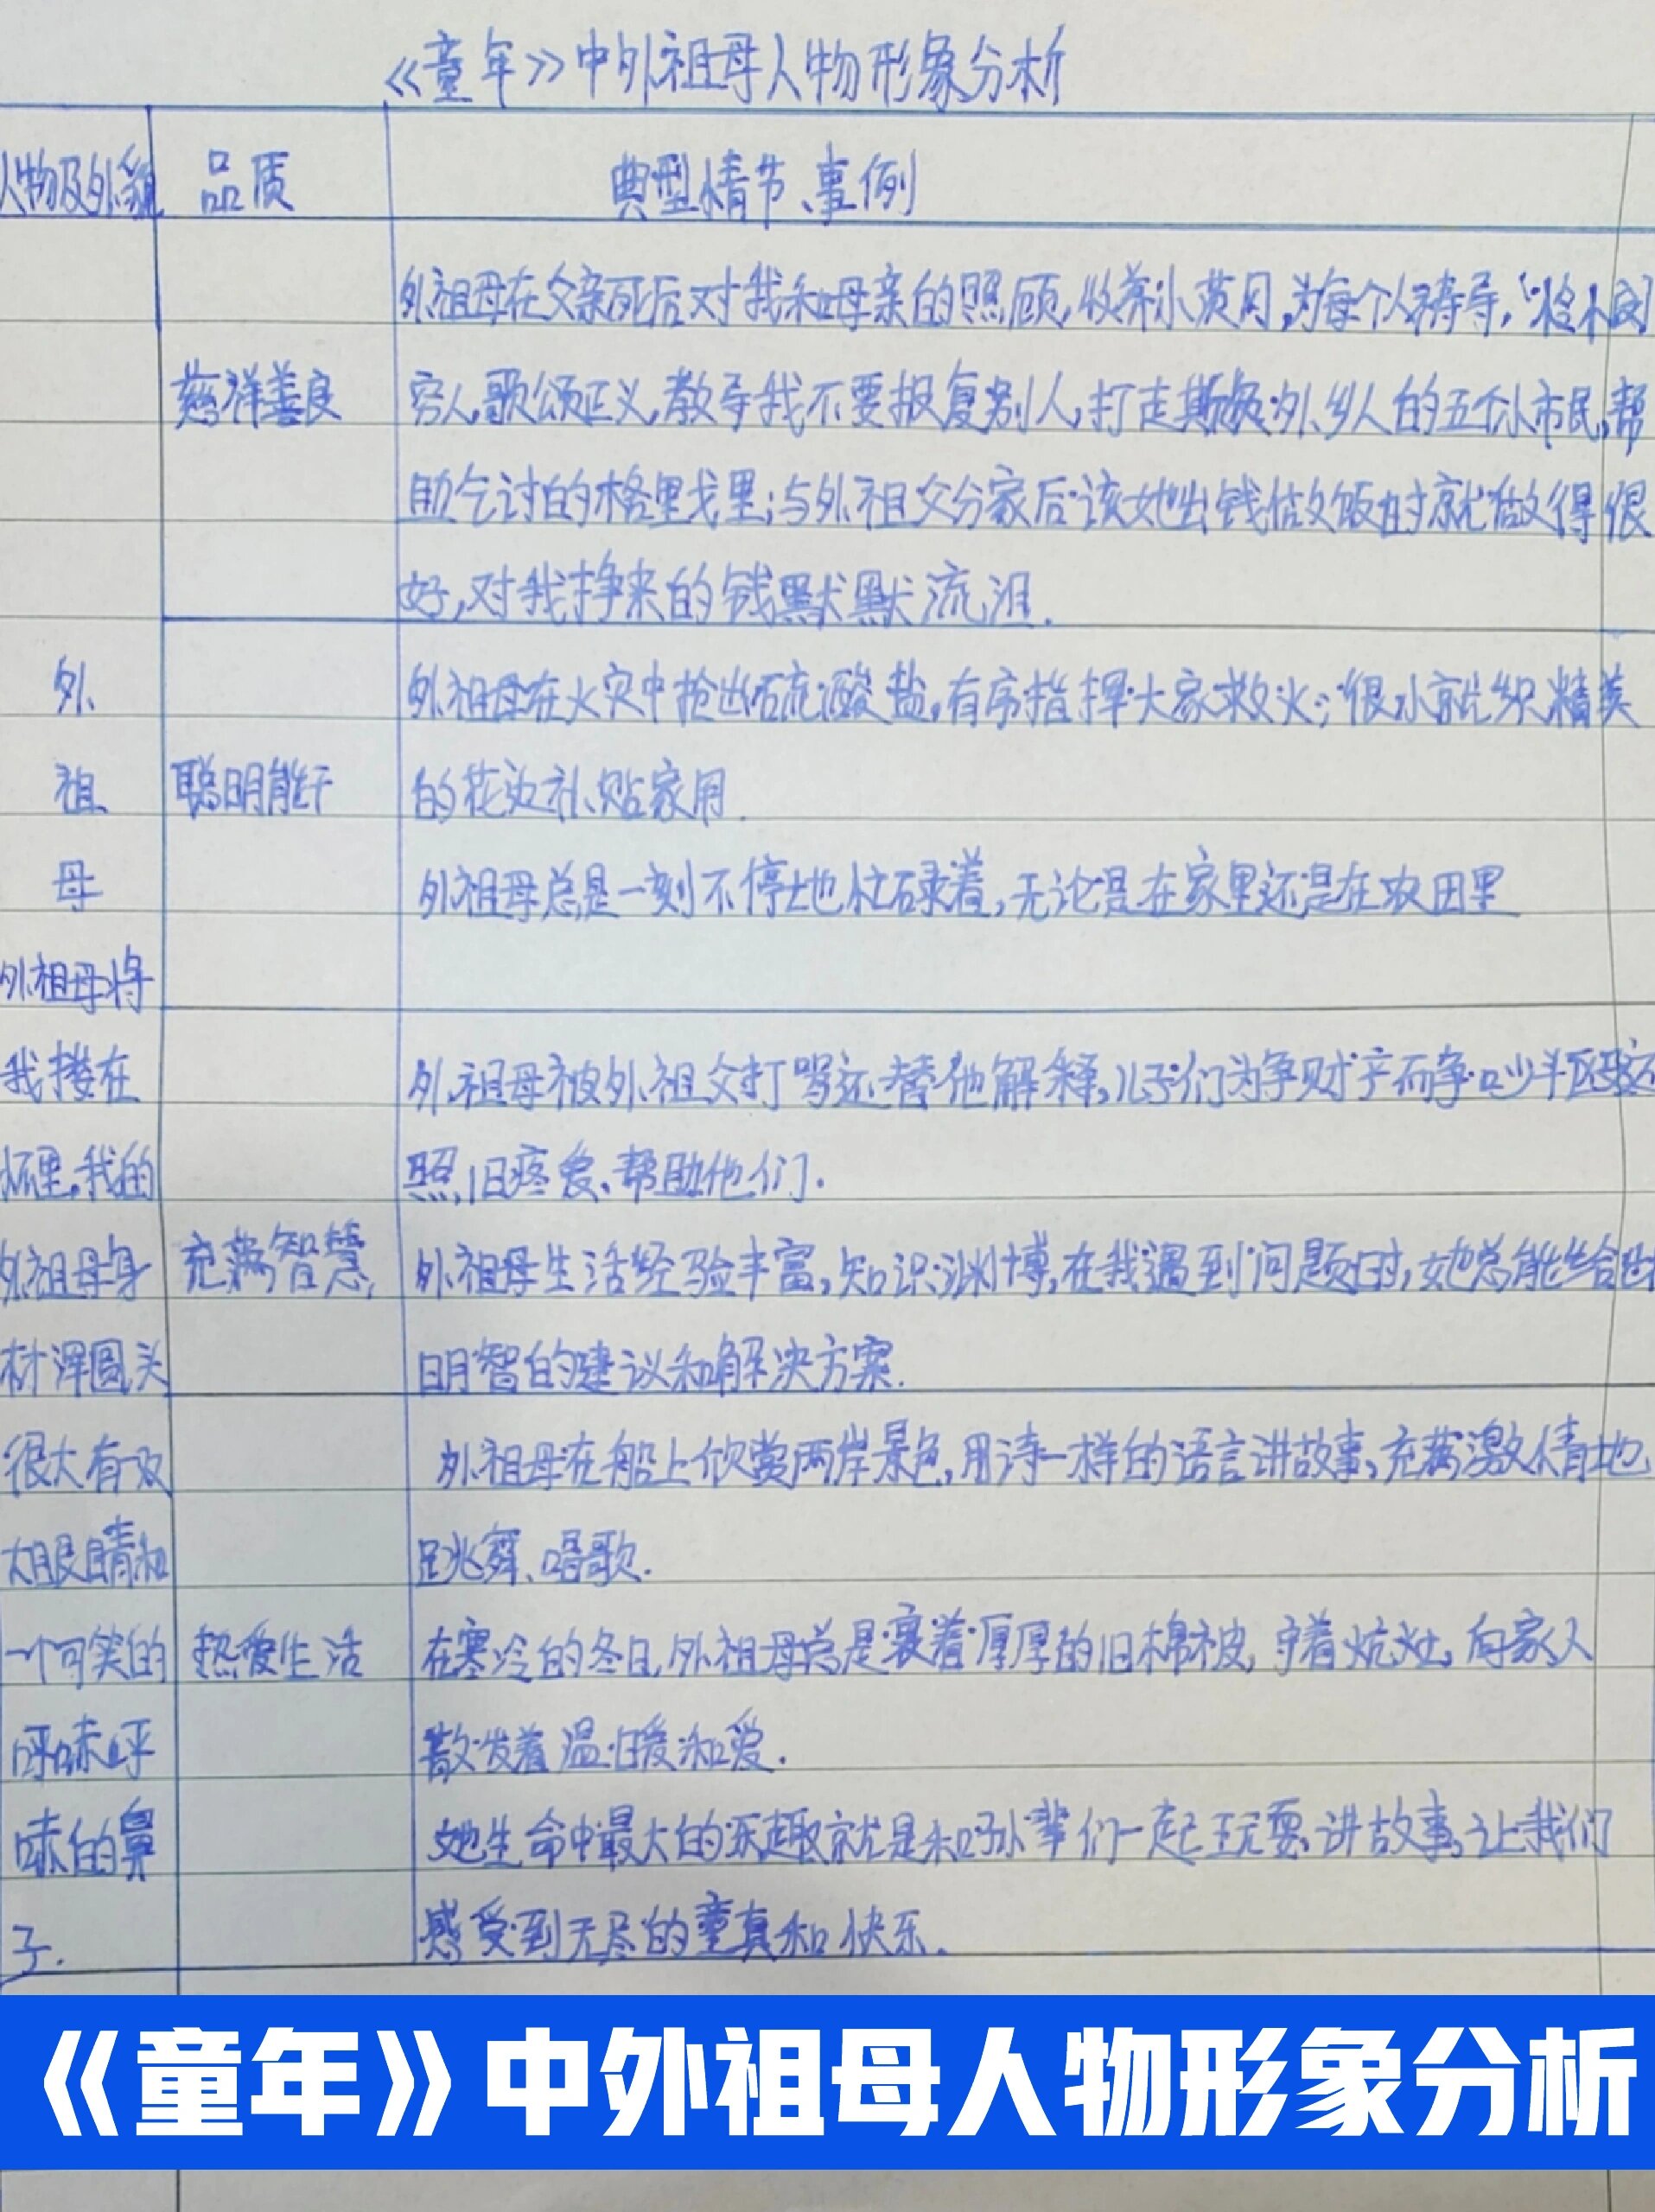 《童年》中外祖母人物形象分析
人物及外貌 品质 典型情节、事例
外祖母在父亲死后对我和母亲的照顾,收养小茨冈,为每个人祷导,
慈祥善良 穷人,歌颂正义,教导我不要报复别人,打走欺负外乡人的五个小市民,帮
助乞讨的格里戈里;与外祖父分家后该她出钱做饭时就做得很
好,对我挣来的钱默默流泪.
外 外祖母在火灾中抢出硫酸盐,有序指挥大家救火;很小就织精美
祖 聪明能干 的花边补贴家用.
母 外祖母总是一刻不停地忙碌着,无论是在家里还是在农田里
外祖母将
我搂在 外祖母被外祖父打骂还替他解释,儿子们为争财产而争吵斗殴还
怀里,我的 照旧疼爱、帮助他们.
外祖母身 充满智慧, 外祖母生活经验丰富,知识渊博,在我遇到问题时,她总能给出
材浑圆头 明智的建议和解决方案.
很大有双 外祖母在船上欣赏两岸景色,用诗一样的语言讲故事,充满激情地
大眼睛和 跳舞、唱歌.
一个可笑的 热爱生活 在寒冷的冬日,外祖母总是裹着厚厚的旧棉被,守着炕灶,向家人
呼哧呼 散发着温暖和爱.
哧的鼻 她生命中最大的乐趣就是和孙辈们一起玩耍、讲故事,让我们
子. 感受到无尽的童真和快乐.
《童年》中外祖母人物形象分析